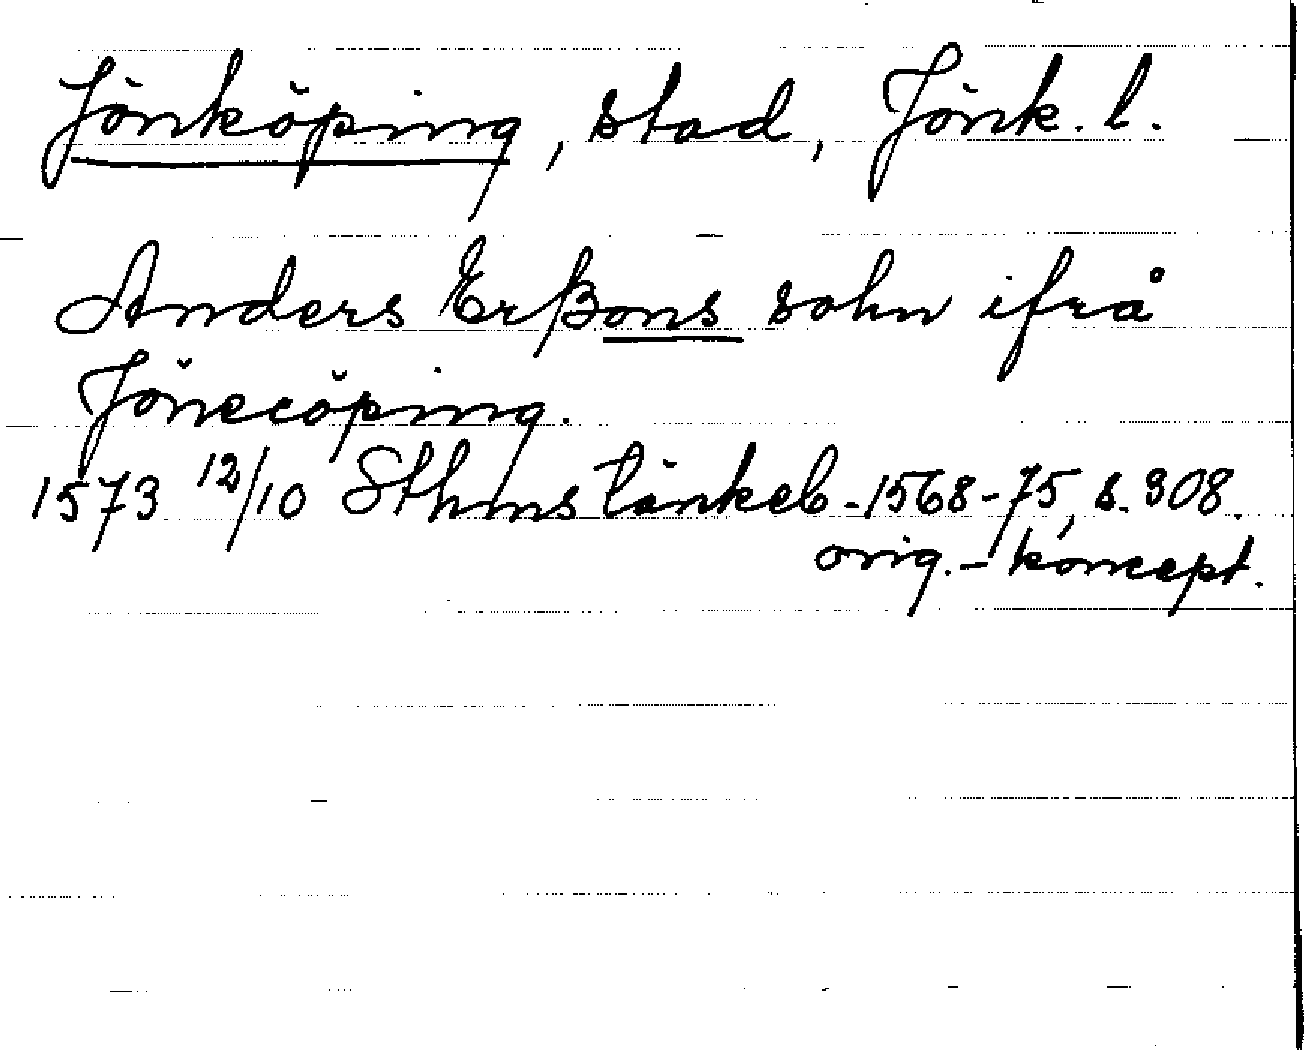 Jönköping, stad, Jönk. l.
Anders Erßons sohn ifrå
Jönecöping.
1573 12/10 Sthms tänkeb. 1568-75, s. 308.
orig.-koncept.